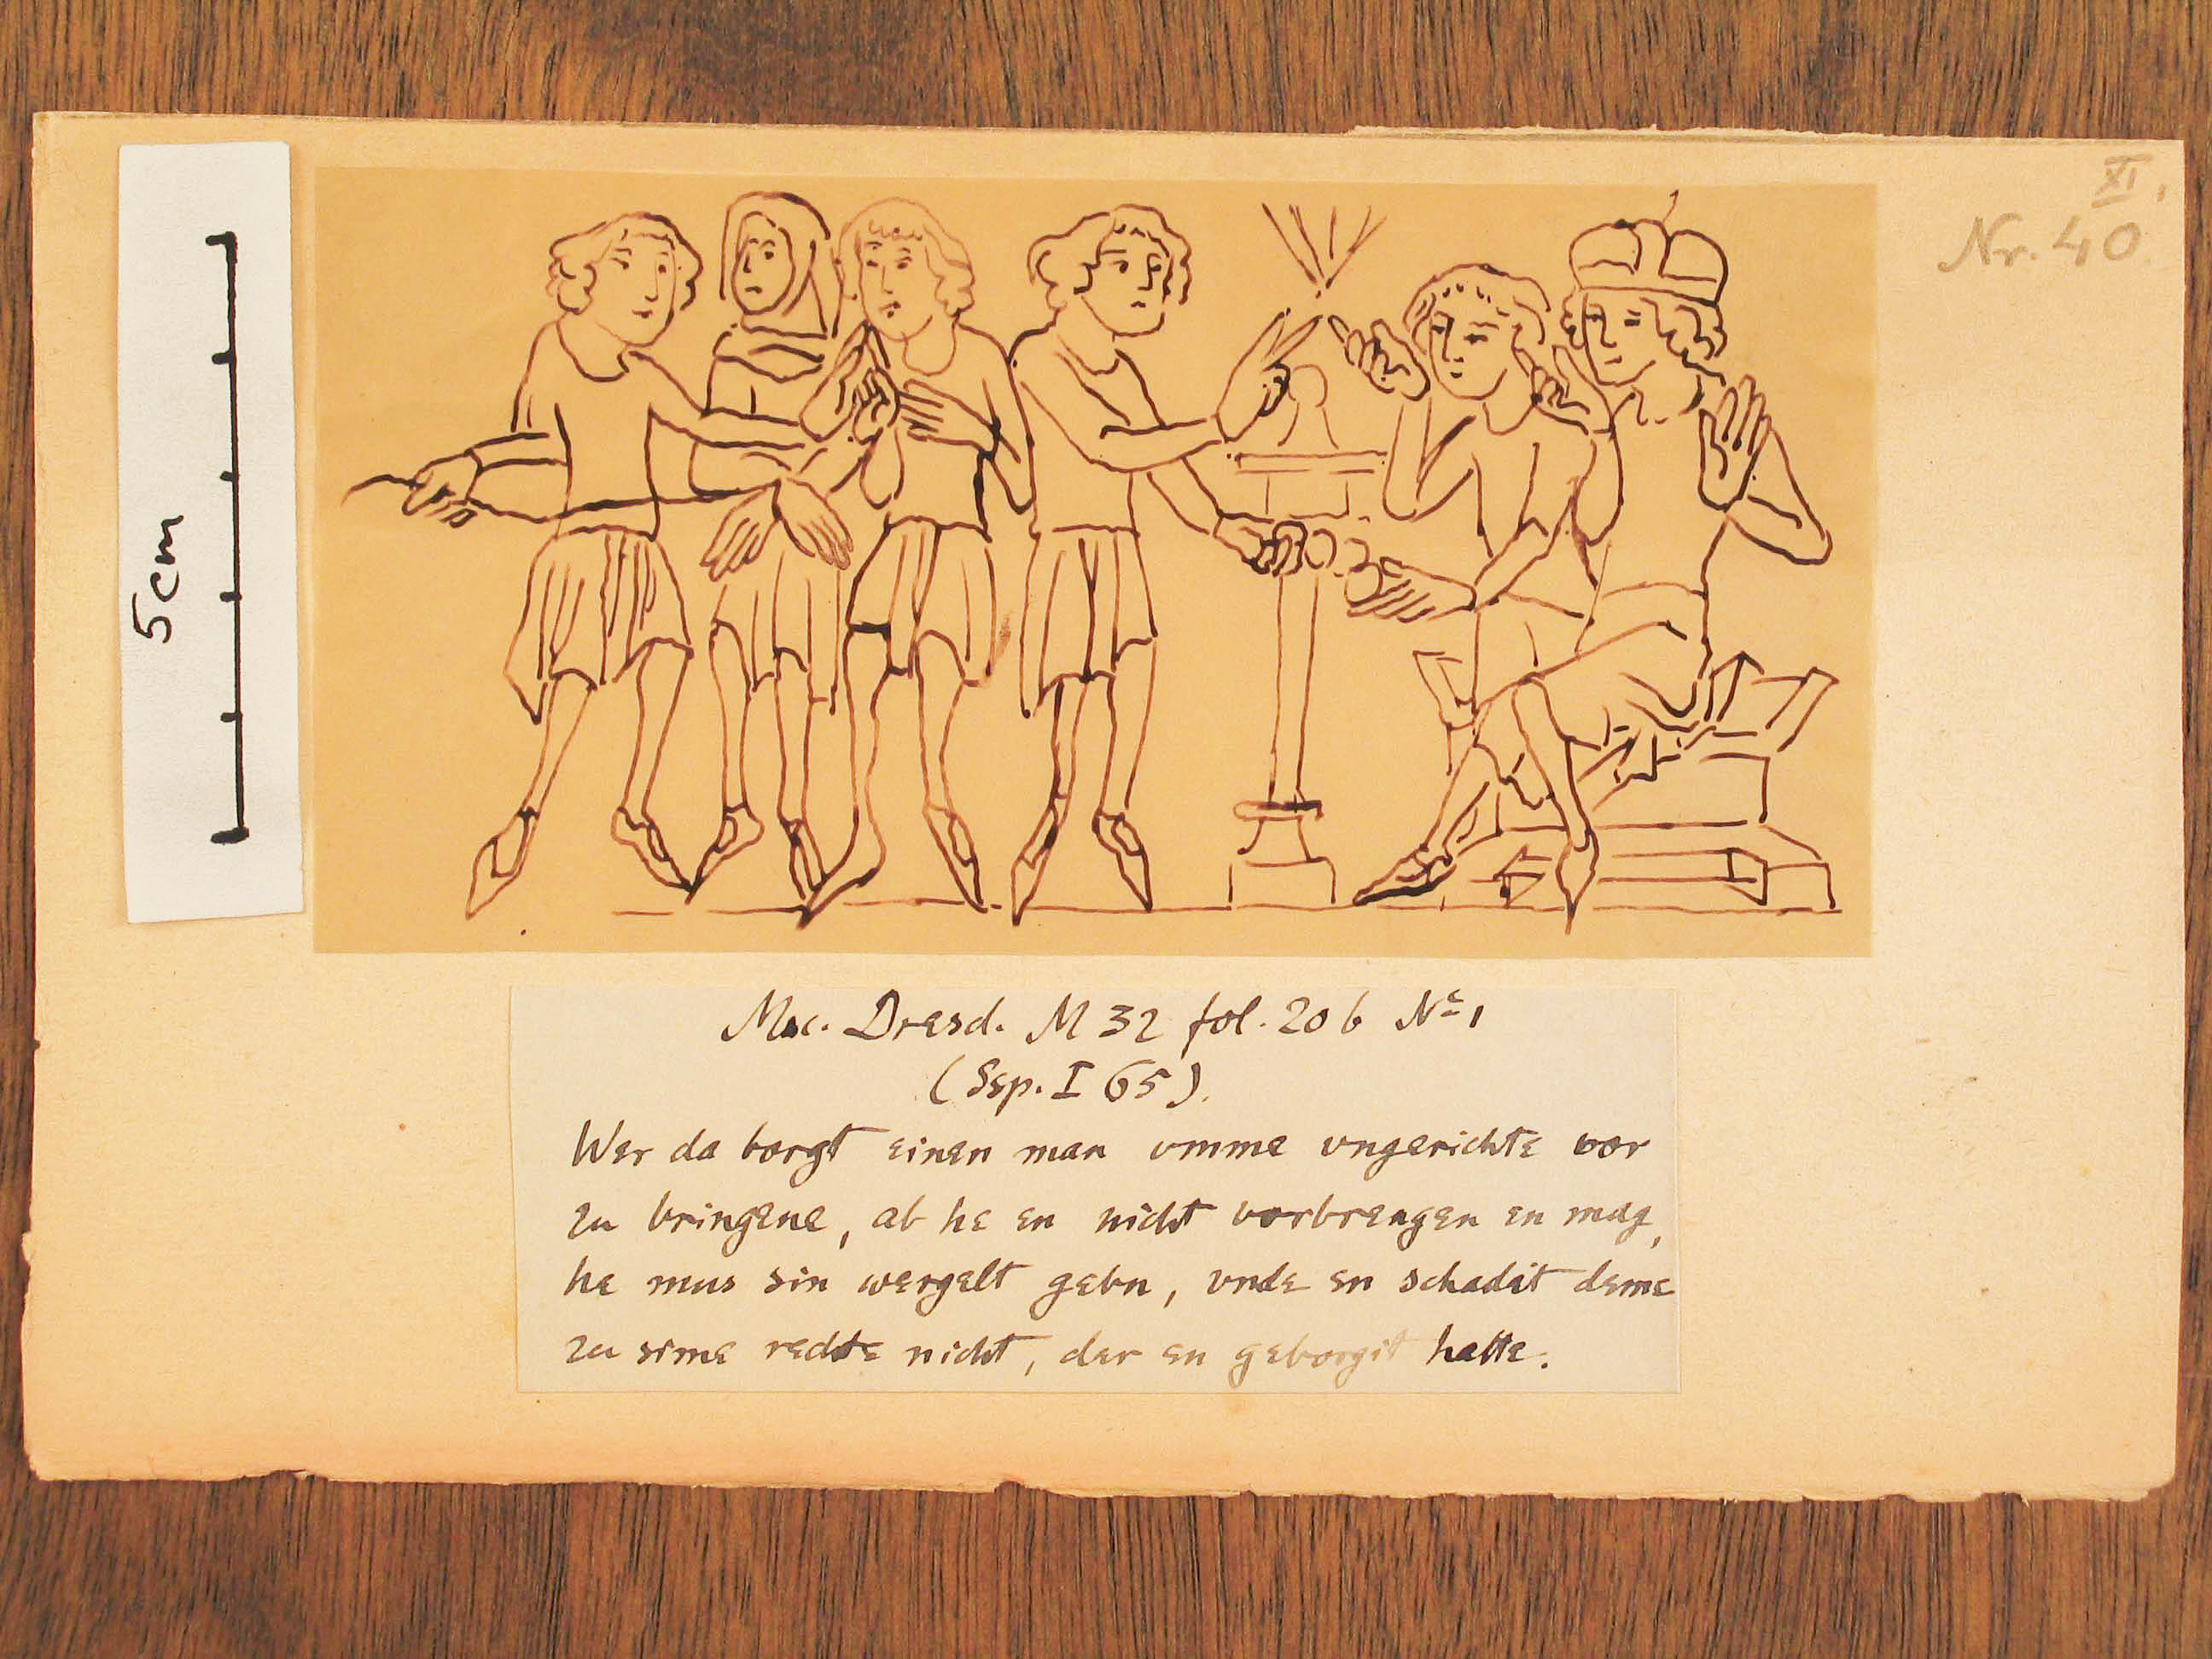 XI.
Nr. 40
5cm
Msc. Dresd. M 32 fol. 20 b No 1
(Ssp. I 65).
Wer da borgt einen man vmme vngerichte vor
zu bringene, ab he en nicht vorbrengen en mag,
he mus sin wergelt gebn, vnde en schadit deme
zu sime rechte nicht, der en geborgit hatte.